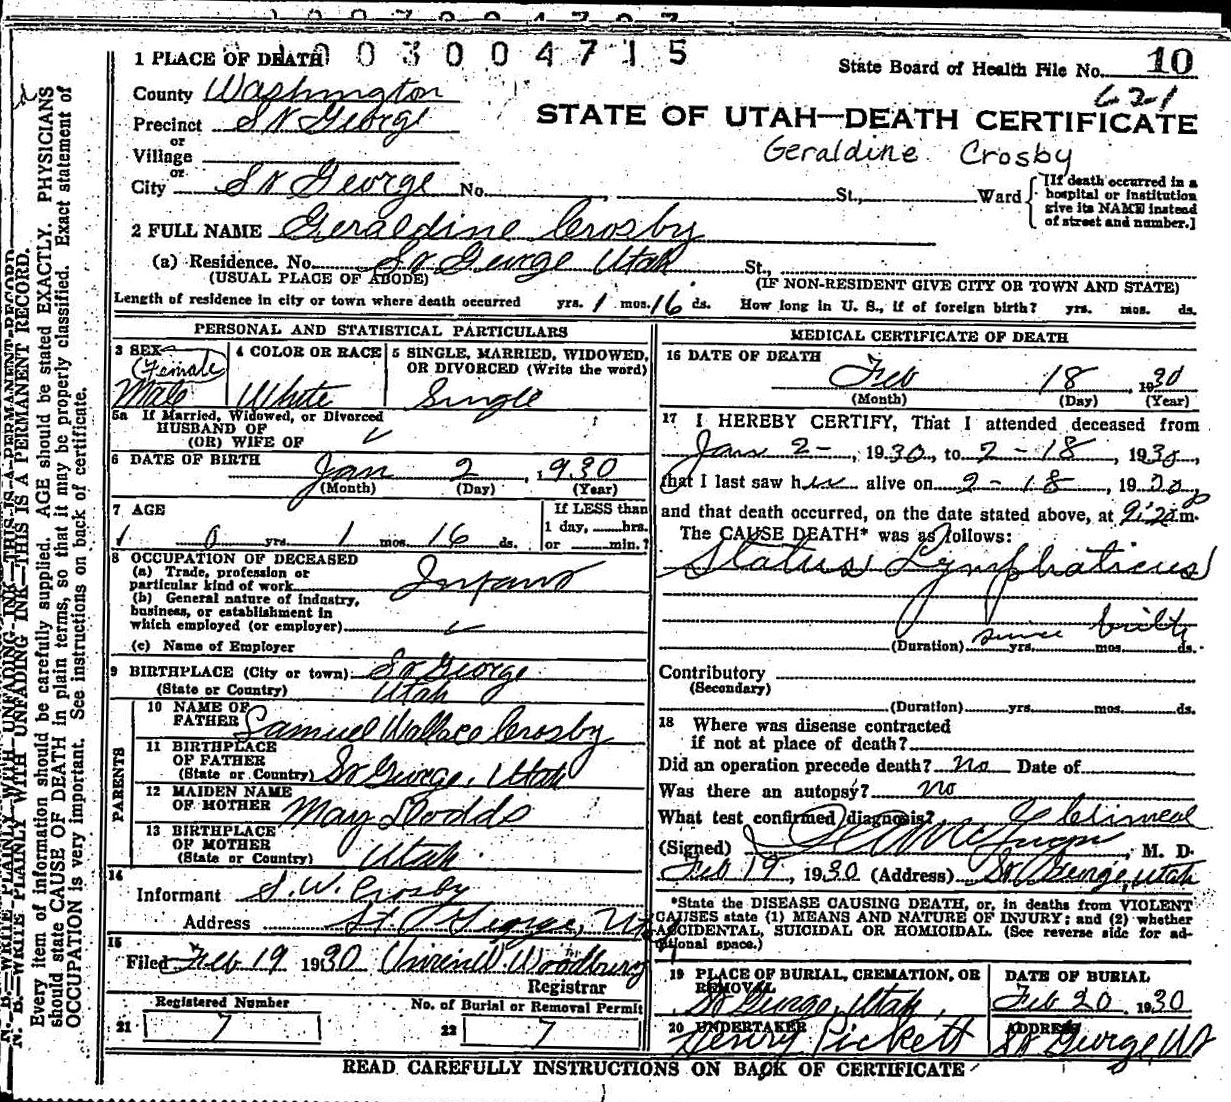 1003004715
1 PLACE OF DEATH
State Board of Health File No. 10
County Washington
62-1
Precinct St George
STATE OF UTAH—DEATH CERTIFICATE
or
Village
Geraldine Crosby
or
City St George No. St., Ward
[If death occurred in a
hospital or institution
give its NAME instead
of street and number.]
2 FULL NAME Geraldine Crosby
(a) Residence. No. St George Utah St.,
(USUAL PLACE OF ABODE) (IF NON-RESIDENT GIVE CITY OR TOWN AND STATE)
Length of residence in city or town where death occurred yrs. 1 mos. 16 ds. How long in U. S., if of foreign birth? yrs. mos. ds.
PERSONAL AND STATISTICAL PARTICULARS
3 SEX
(Female)
Male
4 COLOR OR RACE
White
5 SINGLE, MARRIED, WIDOWED,
OR DIVORCED (Write the word)
Single
5a If Married, Widowed, or Divorced
HUSBAND OF
(OR) WIFE OF
6 DATE OF BIRTH
Jan 2, 1930
(Month) (Day) (Year)
7 AGE
0 yrs. 1 mos. 16 ds.
If LESS than
1 day, hrs.
or min.?
8 OCCUPATION OF DECEASED
(a) Trade, profession or
particular kind of work Infant
(b) General nature of industry,
business, or establishment in
which employed (or employer)
(c) Name of Employer
9 BIRTHPLACE (City or town) St George
(State or Country) Utah
PARENTS
10 NAME OF
FATHER Samuel Wallace Crosby
11 BIRTHPLACE
OF FATHER
(State or Country) St George, Utah
12 MAIDEN NAME
OF MOTHER May Dodds
13 BIRTHPLACE
OF MOTHER
(State or Country) Utah
14
Informant S. W. Crosby
Address St George, Utah
15
Filed Feb 19 1930 Woodbury
Registrar
Registered Number
21 7
No. of Burial or Removal Permit
22 7
MEDICAL CERTIFICATE OF DEATH
16 DATE OF DEATH
Feb 18, 1930
(Month) (Day) (Year)
17 I HEREBY CERTIFY, That I attended deceased from
Jan 2-, 1930, to 2-18, 1930,
that I last saw h alive on 2-18, 1930
and that death occurred, on the date stated above, at m.
The CAUSE DEATH* was as follows:
Status Lymphaticus
(Duration) since birth yrs. mos. ds.
Contributory
(Secondary)
(Duration) yrs. mos. ds.
18 Where was disease contracted
if not at place of death?
Did an operation precede death? no Date of
Was there an autopsy? no
What test confirmed diagnosis? Clinical
(Signed) , M. D.
Feb 19, 1930 (Address) St George, Utah
*State the DISEASE CAUSING DEATH, or, in deaths from VIOLENT
CAUSES state (1) MEANS AND NATURE OF INJURY; and (2) whether
ACCIDENTAL, SUICIDAL OR HOMICIDAL. (See reverse side for ad-
ditional space.)
19 PLACE OF BURIAL, CREMATION, OR
REMOVAL
St George, Utah
DATE OF BURIAL
Feb 20, 1930
20 UNDERTAKER
Henry Pickett
ADDRESS
St George, Ut
READ CAREFULLY INSTRUCTIONS ON BACK OF CERTIFICATE
N. B.—WRITE PLAINLY WITH UNFADING INK—THIS IS A PERMANENT RECORD.
Every item of information should be carefully supplied. AGE should be stated EXACTLY. PHYSICIANS
should state CAUSE OF DEATH in plain terms, so that it may be properly classified. Exact statement of
OCCUPATION is very important. See instructions on back of certificate.